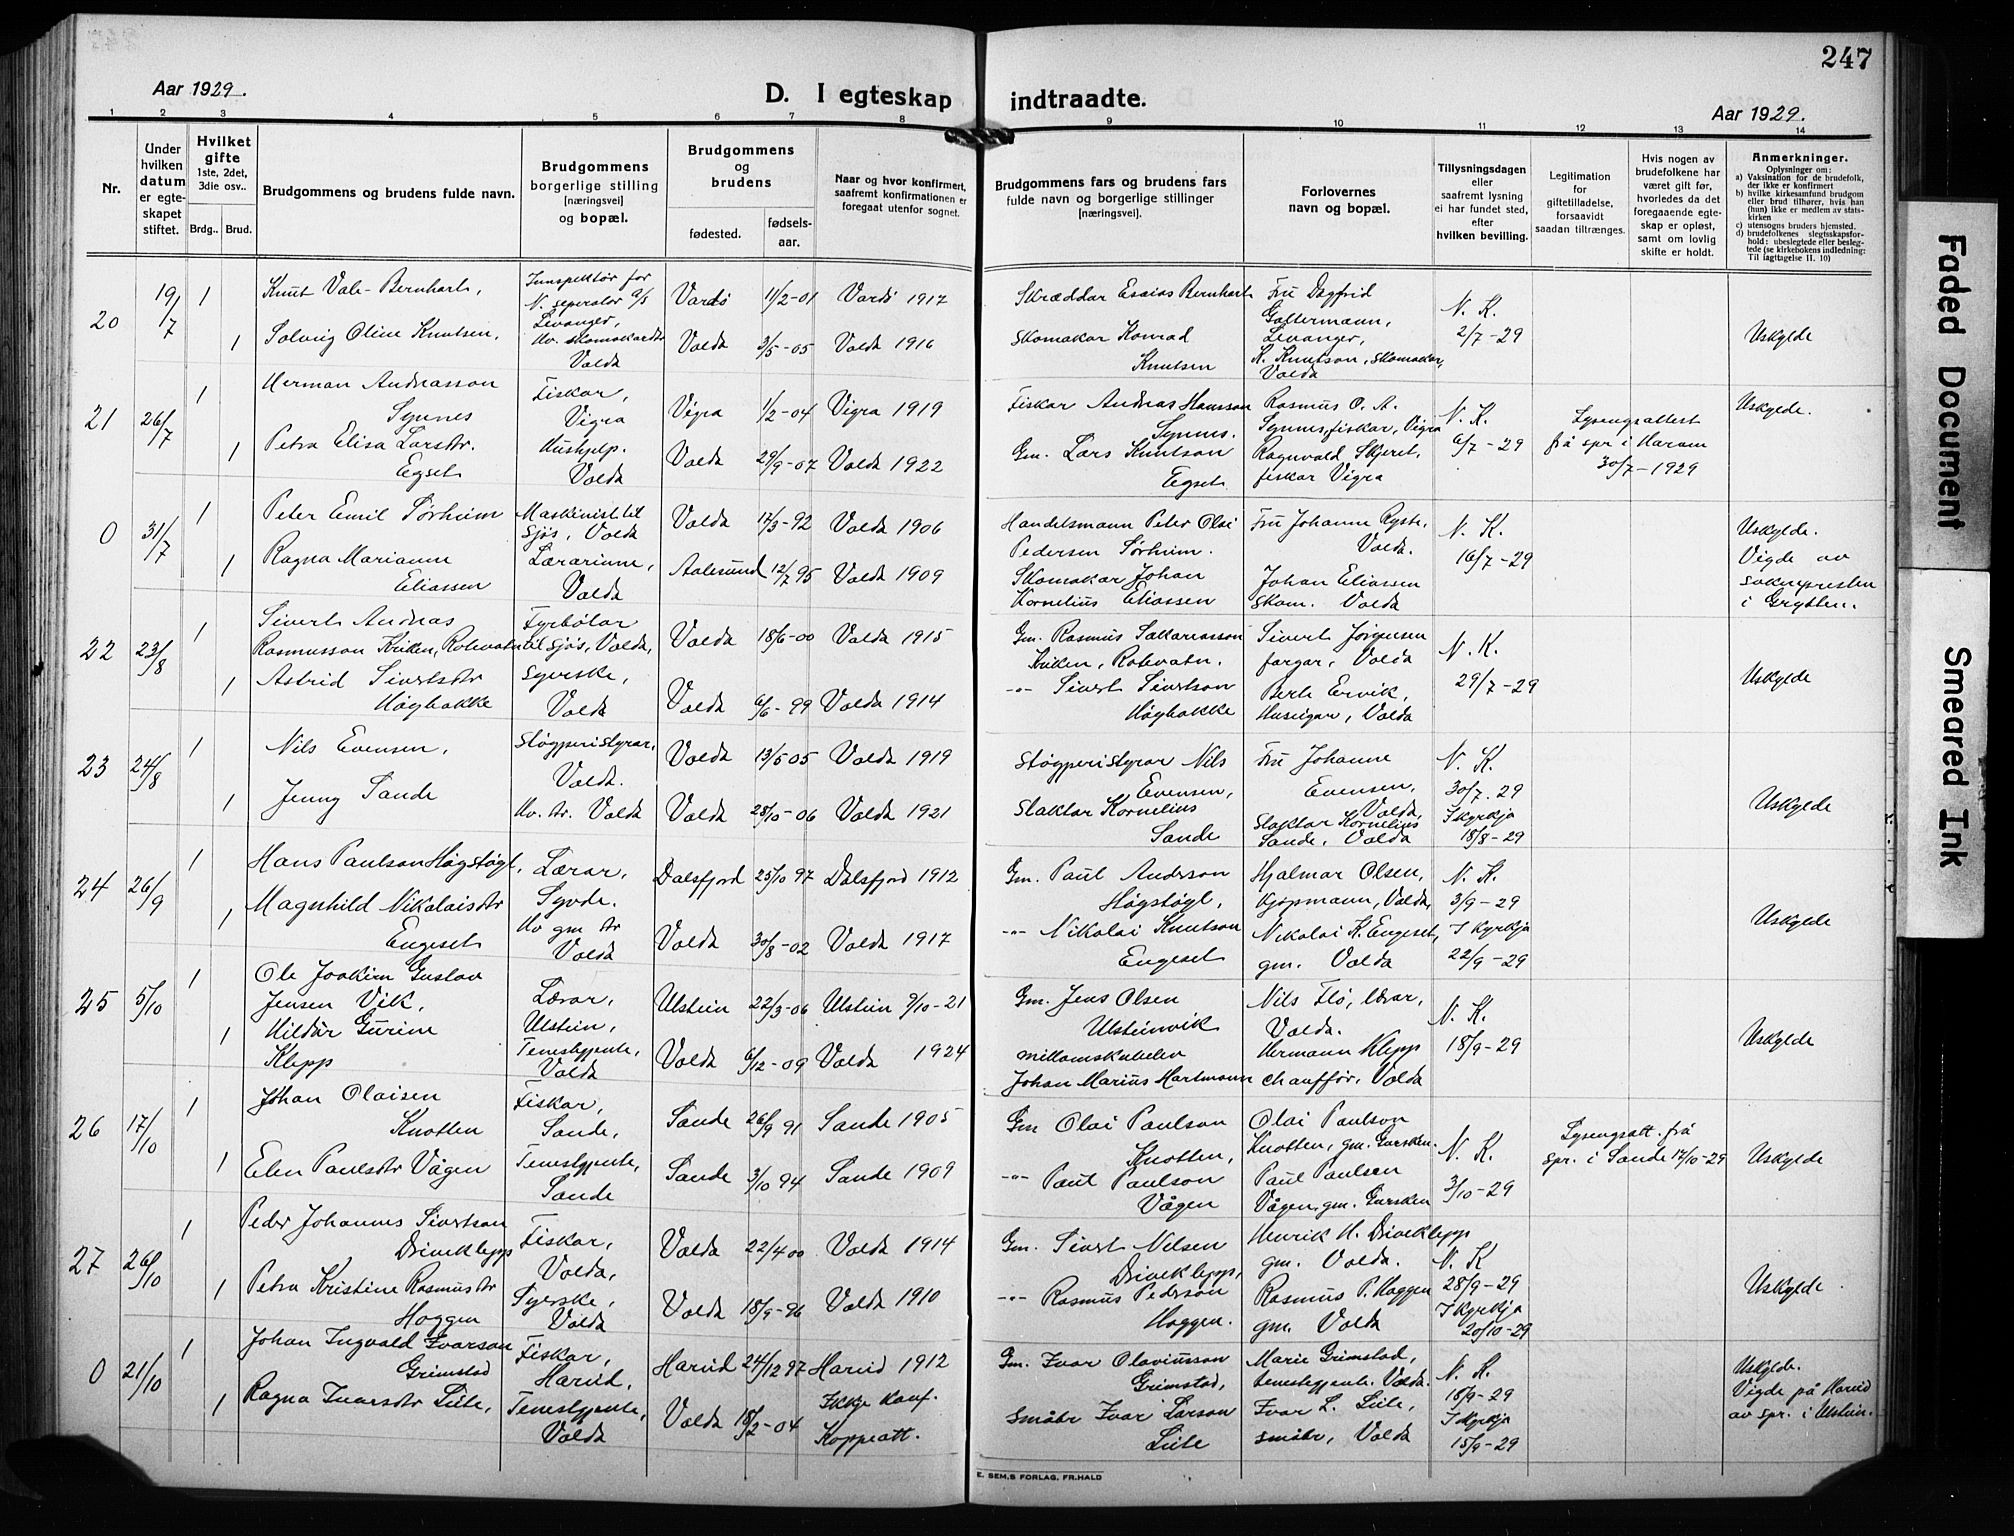 247
Aar 1929.
D. I egteskap indtraadte.
Aar 1929.
1 2 3 4 5 6 7 8 9 10 11 12 13 14
Nr.
Under hvilken datum er egteskapet stiftet.
Hvilket gifte 1ste, 2det, 3die osv..
Brdg.. Brud.
Brudgommens og brudens fulde navn.
Brudgommens borgerlige stilling [næringsvei] og bopæl.
Brudgommens og brudens
fødested. fødselsaar.
Naar og hvor konfirmert, saafremt konfirmationen er foregaat utenfor sognet.
Brudgommens fars og brudens fars fulde navn og borgerlige stillinger [næringsvei].
Forlovernes navn og bopæl.
Tillysningsdagen eller saafremt lysning ei har fundet sted, efter hvilken bevilling.
Legitimation for giftetilladelse, forsaavidt saadan tiltrænges.
Hvis nogen av brudefolkene har været gift før, hvorledes da det foregaaende egteskap er opløst, samt om lovlig skifte er holdt.
Anmerkninger.
Oplysninger om:
a) Vaksination for de brudefolk, der ikke er konfirmert
b) hvilke kirkesamfund brudgom eller brud tilhører, hvis han (hun) ikke er medlem av statskirken
c) utensogns bruders hjemsted.
d) brudefolkenes slegtsskapsforhold: ubeslegtede eller beslegtede (se kirkebokens indledning: Til iagttagelse II. 10)
20 19/7 1 Knut Vale-Bernhart, Innspektør for N. seperator a/s Levanger, Vardö 11/2-01 Vardö 1917 Skræddar Esaias Bernhart Fru Dagfrid Goltermann, Levanger, N. K. 2/7-29
1 Solveig Oline Knutsen, Hv. skomakardtr Volda Volda 3/5-05 Volda 1916 Skomakar Konrad Knutsen K. Knutson, skomakar, Volda Uskylde
21 26/7 1 Herman Andreasson Synnes Fiskar, Vigra Vigra 1/2-04 Vigra 1919 Fiskar Andreas Hansson Synnes. Rasmus O. A. Synnes, fiskar, Vigra N. K. 6/7-29 Lysengsattest frå spr. i Haram 30/7-1929 Uskylde.
1 Petra Elisa Larsdtr. Egset Hushjelp. Volda Volda 29/9-07 Volda 1922 Gm. Lars Knutson Egset Ragnvald Skjeret, fiskar Vigra
0 31/7 1 Peter Emil Sørheim Maskinist til sjøs, Volda Volda 17/3-92 Volda 1906 Handelsmann Peter Olai Pedersen Sørheim. Fru Johanne Ryste, Volda. N. K. 16/7-29 Uskylde. Vigde av soknepresten i Grytten.
1 Ragna Marianne Eliassen Lærarinne, Volda Aalesund 12/7 95 Volda 1909 Skomakar Johan Kornelius Eliassen Johan Eliassen skom. Volda
22 23/8 1 Sivert Andreas Rasmusson Kriken, Rotevatn Fyrbøtar til sjøs, Volda, Volda 18/6-00 Volda 1915 Gm. Rasmus Sakariasson Kriken, Rotevatn. Sivert Jørgensen fargar, Volda N. K. 29/7-29
1 Astrid Sivertsdtr Høgbakke Syerske, Volda Volda 6/6-99 Volda 1914 -"- Sivert Sivertson Høgbakke Berte Ervik, Huseigar, Volda Uskylde
23 24/8 1 Nils Evensen, Støyperistyrar, Volda. Volda 13/5 05 Volda 1919 Støyperistyrar Nils Evensen, Fru Johanne Evensen, Volda, N. K. 30/7. 29
1 Jenny Sande Hv. dr. Volda Volda 28/10-06 Volda 1921 Slaktar Kornelius Sande Slaktar Kornelius Sande, Volda I kyrkja 18/8-29 Uskylde
24 26/9 1 Hans Paulson Høgstøyl, Lærar, Syvde. Dalsfjord 25/10 97 Dalsfjord 1912 Gm. Paul Anderson Høgstøyl, Hjalmar Olsen, Kjøpmann, Volda, N. K. 3/9-29
1 Magnhild Nikolaisdtr Engeset Hv gm dtr Volda Volda 30/8-02 Volda 1917 -"- Nikolai Knutson Engeset Nikolai K. Engeset, gm. Volda I kyrkja 22/9-29 Uskylde
25 5/10 1 Ole Joakim Gustav Jensen Vik, Lærar, Ulstein, Ulstein 22/3-06 Ulstein 9/10-21 Gm. Jens Olsen Ulsteinvik Nils Flø, lærar, Volda. N. K. 18/9-29
1 Hildur Gurine Klepp Tenestjente, Volda Volda 6/12-09 Volda 1924 Johan Marius Hartmann Hermann Klepp chauffør, Volda Uskylde
26 17/10 1 Johan Olaisen Knotten Fiskar, Sande, Sande 26/9 91 Sande 1905 Gm Olai Paulson Knotten, Olai Paulson Knotten, gm. Gursken. N. K. 3/10-29 Lysengsatt. frå spr. i Sande 17/10-29 Uskylde
1 Elen Paulsdtr Vågen Tenestjente, Sande Sande 3/10 94 Sande 1909 -"- Paul Paulson Vågen Paul Paulsen Vågen, gm. Gursken
27 26/10 1 Peder Johannes Sivertson Driveklepp Fiskar, Volda, Volda 22/4 00 Volda 1914 Gm. Sivert Nilsen Driveklepp, Henrik H. Driveklepp gm. Volda. N. K 28/9-29
1 Petra Kristine Rasmusdtr Hoggen Syerske, Volda Volda 18/9-96 Volda 1910 -"- Rasmus Pederson Hoggen. Rasmus P. Hoggen gm. Volda I kyrkja 20/10-29 Uskylde
0 21/10 1 Johan Ingvald Ivarson Grimstad Fiskar, Hareid, Hareid 24/12 97 Hareid 1912 Gm. Ivar Olaviusson Grimstad, Marie Grimstad, tenestjente. Volda. N. K. 18/9-29 Uskylde. Vigde på Hareid av spr. i Ulstein.
1 Ragna Ivarsdtr Liile, Tenestjente, Volda Volda 18/2-04 Ikkje konf. Koppeatt. Småbr Ivar Larson Liile Ivar L. Liile, småbr, Volda I kyrkja 15/9-29
E. SEM,S FORLAG, FR.HALD
Faded Document
Smeared Ink